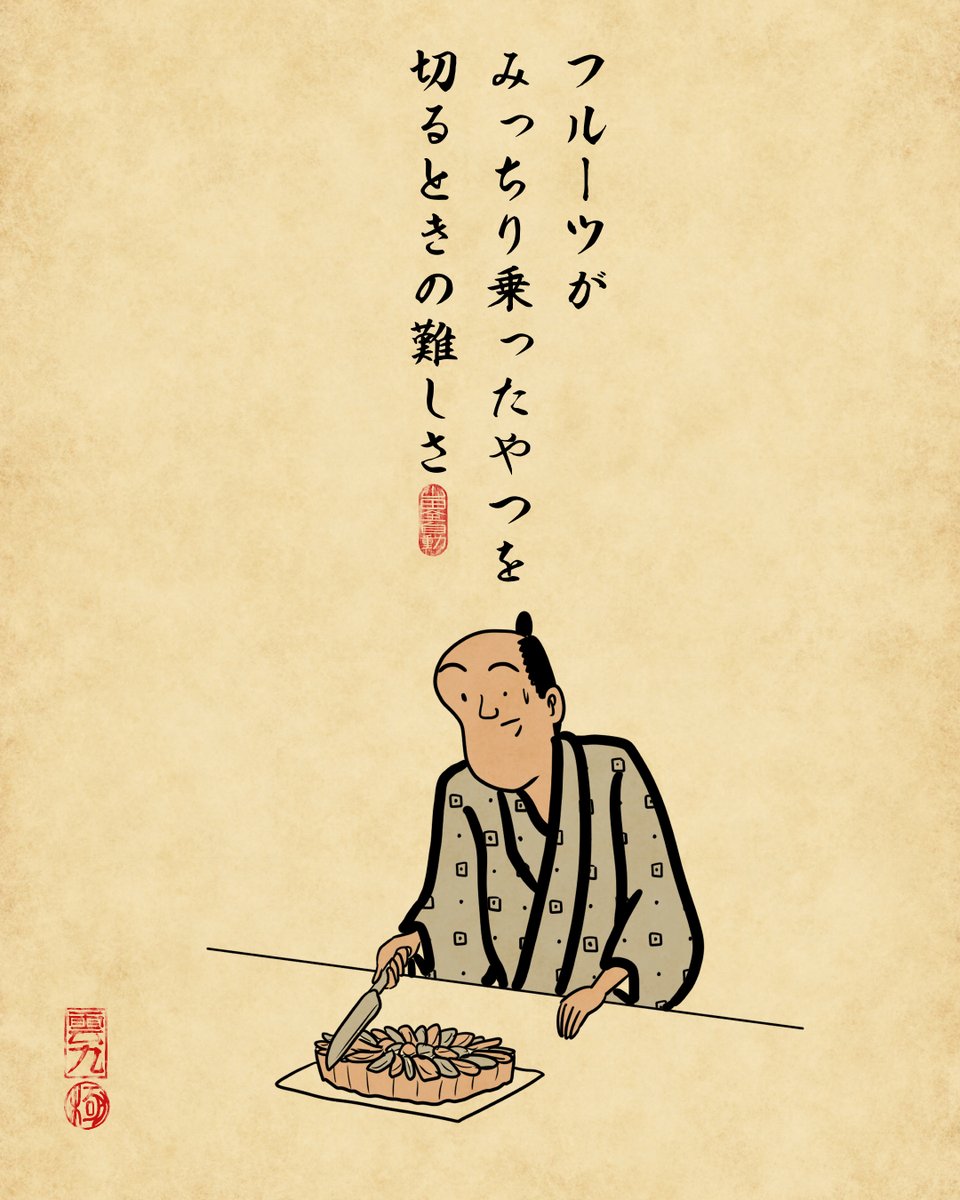 フルーツが
みっちり乗ったやつを
切るときの難しさ